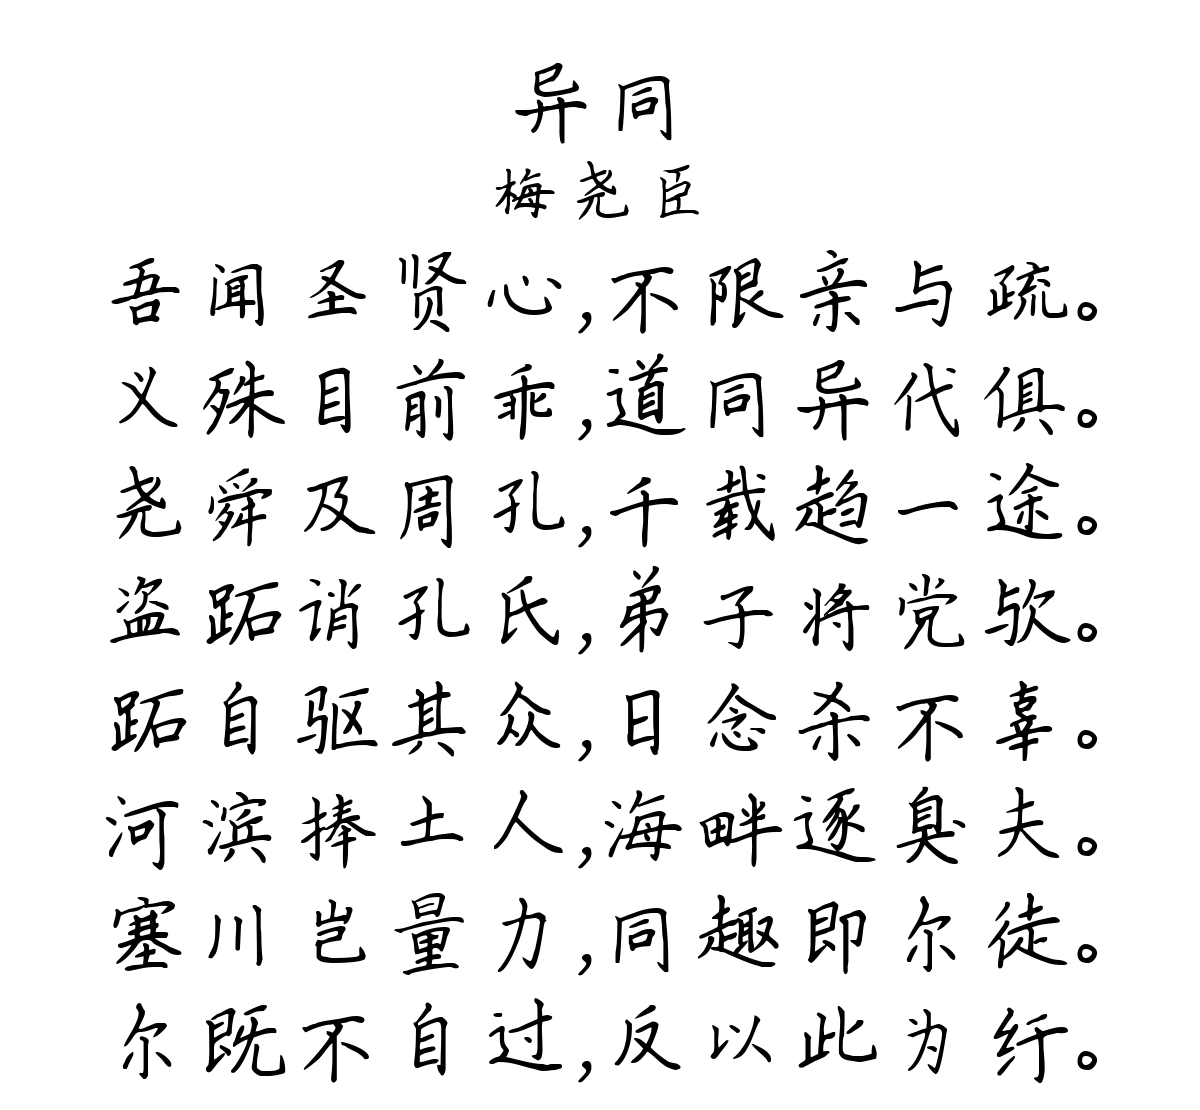 异同
梅尧臣
吾闻圣贤心,不限亲与疏。
义殊目前乖,道同异代俱。
尧舜及周孔,千载趋一途。
盗跖诮孔氏,弟子将党欤。
跖自驱其众,日念杀不辜。
河滨捧土人,海畔逐臭夫。
塞川岂量力,同趣即尔徒。
尔既不自过,反以此为纡。